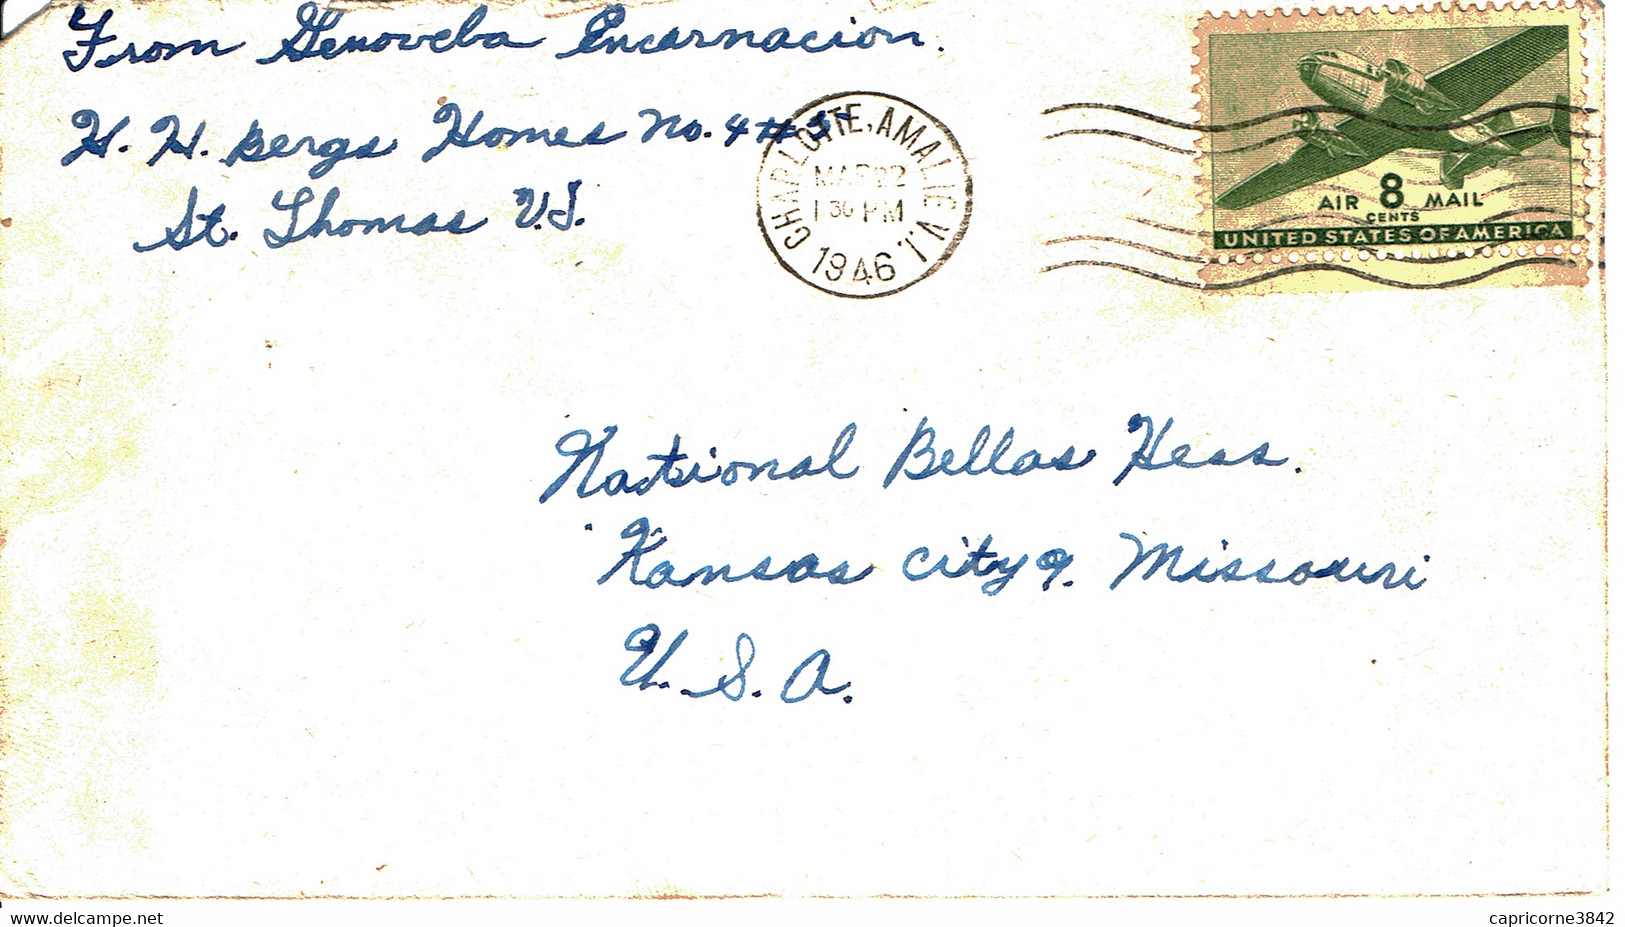 From Genoveba Encarnacion.
H. H. Bergs Homes No. 4 # 5
St. Thomas V.I.
CHARLOTTE, AMALIE V.I.
MAR 22
1 30 PM
1946
AIR 8 MAIL
CENTS
UNITED STATES OF AMERICA
National Bellas Hess.
Kansas City 9. Missouri
U. S. A.
delcampe.net
capricorne3842